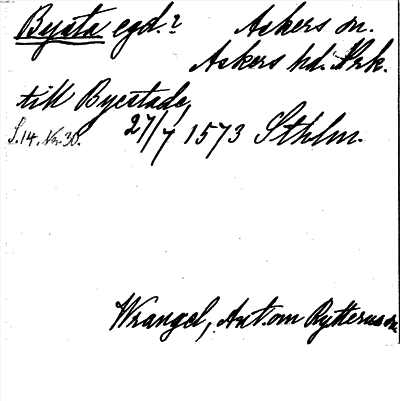 Bysta egd.? Askers sn.
Askers hd. Nrk.
till Byestade,
S.14, Nr.30. 27/7 1573 Sthlm.
Wrangel, Ant. om Rytterns sn.